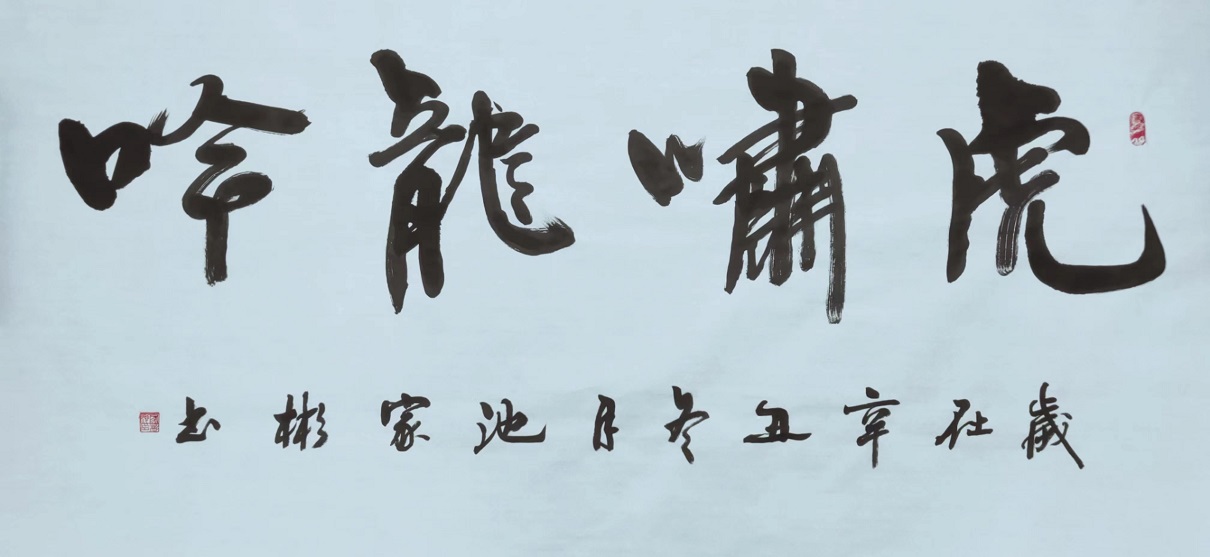 虎嘯龍吟
歲在辛丑冬月池家彬书